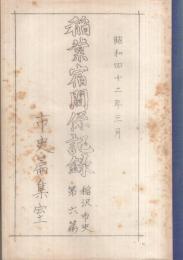 昭和四十二年三月
稲葉宿関係記録
稲沢市史
第六篇
市史篇集室